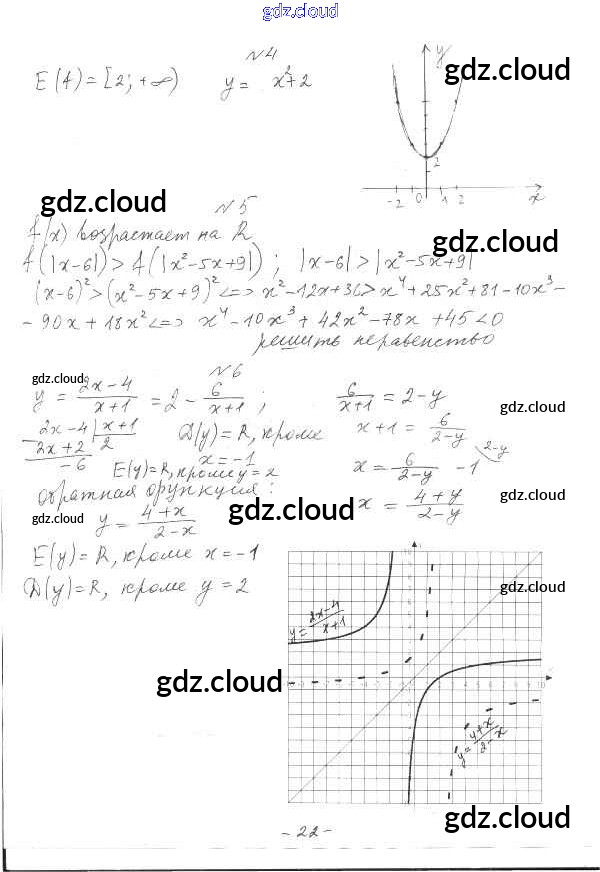 gdz.cloud
N4
E(f) = [2; +∞) y = x²+2
y
gdz.cloud
2
-2 1 2 x
gdz.cloud
N5
f(x) возрастает на R
gdz.cloud
f(|x-6|) > f(|x²-5x+9|) ; |x-6| > |x²-5x+9|
(x-6)² > (x²-5x+9)² <=> x²-12x+36 > x⁴+25x²+81-10x³-
-90x+18x² <=> x⁴-10x³+42x²-78x+45<0
решить неравенство
N6
gdz.cloud
y = (2x-4)/(x+1) = 2 - 6/(x+1) ; 6/(x+1) = 2-y
gdz.cloud
2x-4 | x+1
2x+2 | 2
-6
D(y)=R, кроме x=-1
x+1 = 6/(2-y)
E(y)=R, кроме y=2
x = 6/(2-y) - 1 \2-y
обратная функция:
x = (4+y)/(2-y)
gdz.cloud
gdz.cloud
y = (4+x)/(2-x)
gdz.cloud
E(y)=R, кроме x=-1
D(y)=R, кроме y=2
gdz.cloud
y = (2x-4)/(x+1)
gdz.cloud
gdz.cloud
y = (4+x)/(2-x)
- 22 -
gdz.cloud